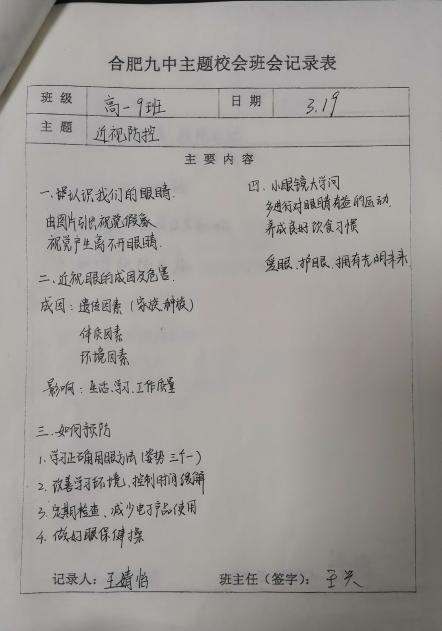 合肥九中主题校会班会记录表
班级 高一9班 日期 3.19
主题 近视防控
主要内容
一、认识我们的眼睛.
由图片引出视觉假象
视觉产生离不开眼睛.
二、近视眼的成因及危害.
成因：遗传因素（家族、种族）
体质因素
环境因素
影响：生活、学习、工作质量
三、如何预防
1. 学习正确用眼方法（姿势 三个一）
2. 改善学习环境、控制时间缓解
3. 定期检查、减少电子产品使用
4. 做好眼保健操
四、小眼镜大学问
多进行对眼睛有益的运动.
养成良好饮食习惯
爱眼、护眼、拥有光明未来.
记录人：王婧怡 班主任（签字）：王兴